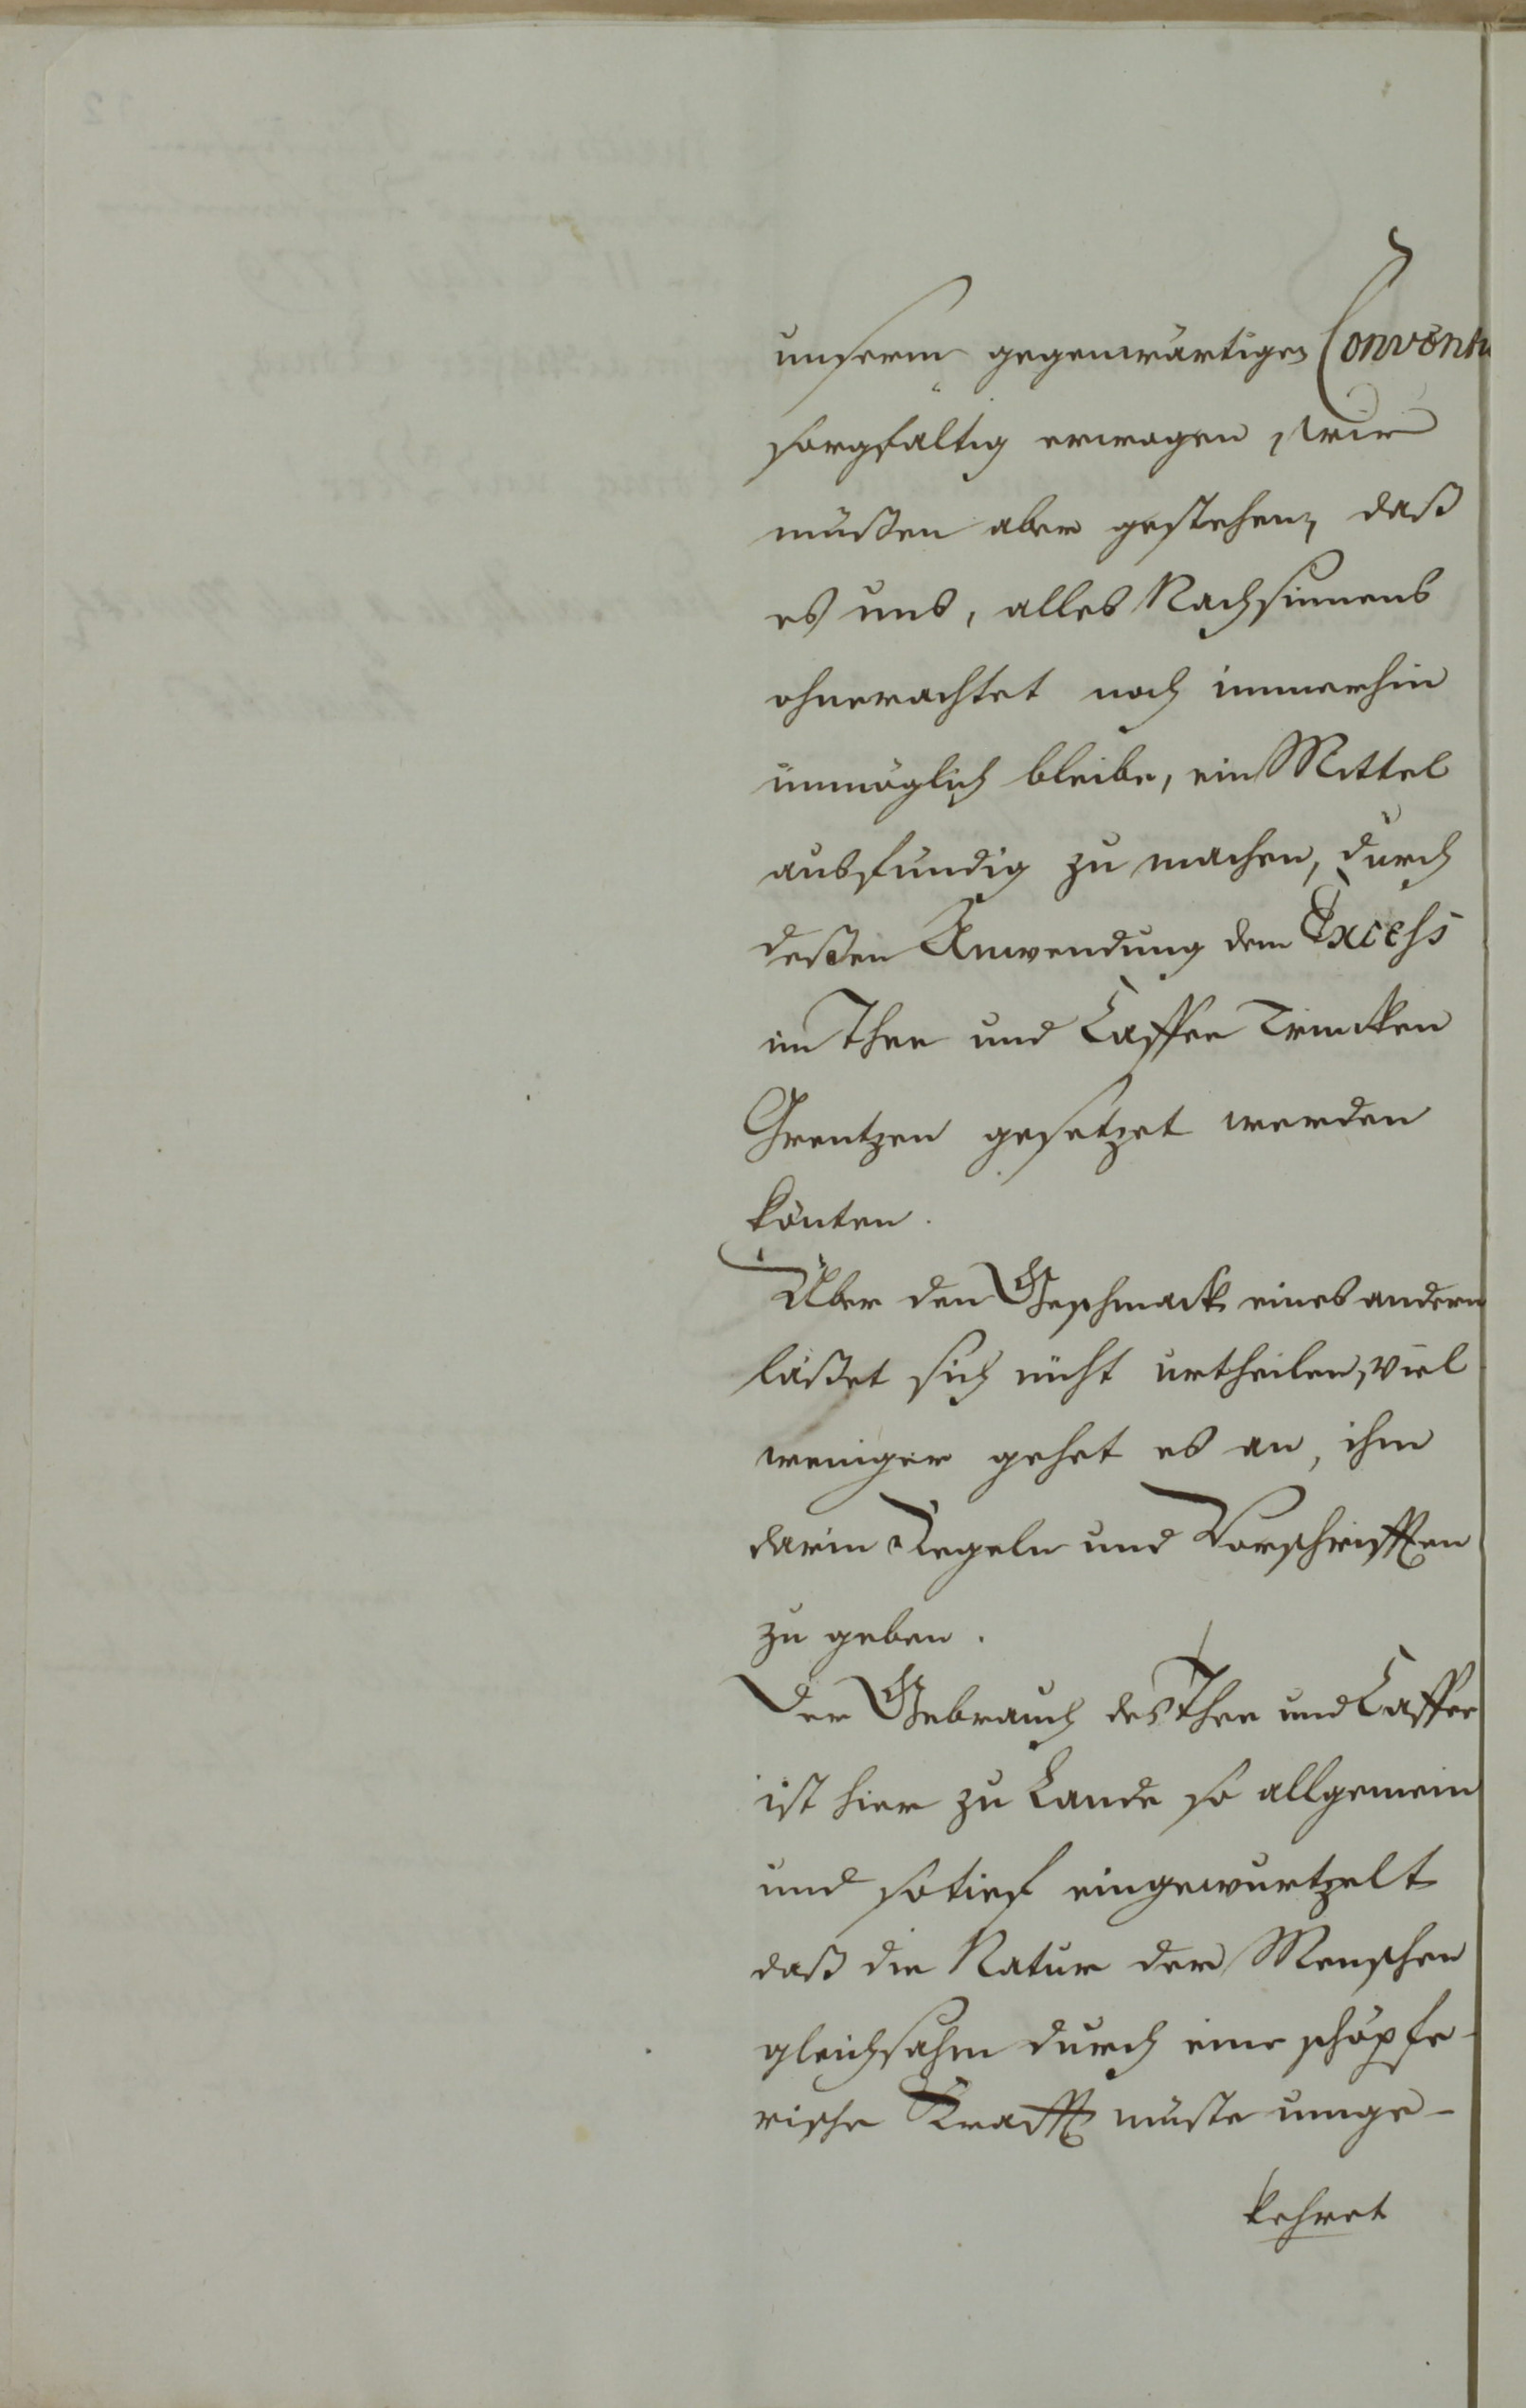 unserm gegenwärtigen Convent
sorgfältig erwogen, wir
müßen aber gestehen, daß
es uns, alles Nachsinnens
ohnerachtet noch immerhin
unmöglich bleibe, ein Mittel
ausfündig zu machen, durch
deßen Anwendung dem Excess
im Thee und Caffee Trincken
Grentzen gesetzet werden
könten.
Über den Geschmack eines andern
läßet sich nicht urtheilen, viel
weniger gehet es an, ihm
darin Regeln und Vorschrifften
zu geben.
Der Gebrauch des Thee und Caffee
ist hier zu Lande so allgemein
und so tief eingewurtzelt
daß die Natur der Menschen
gleichsahm durch eine schöpfe-
rische Krafft müste umge-
kehret